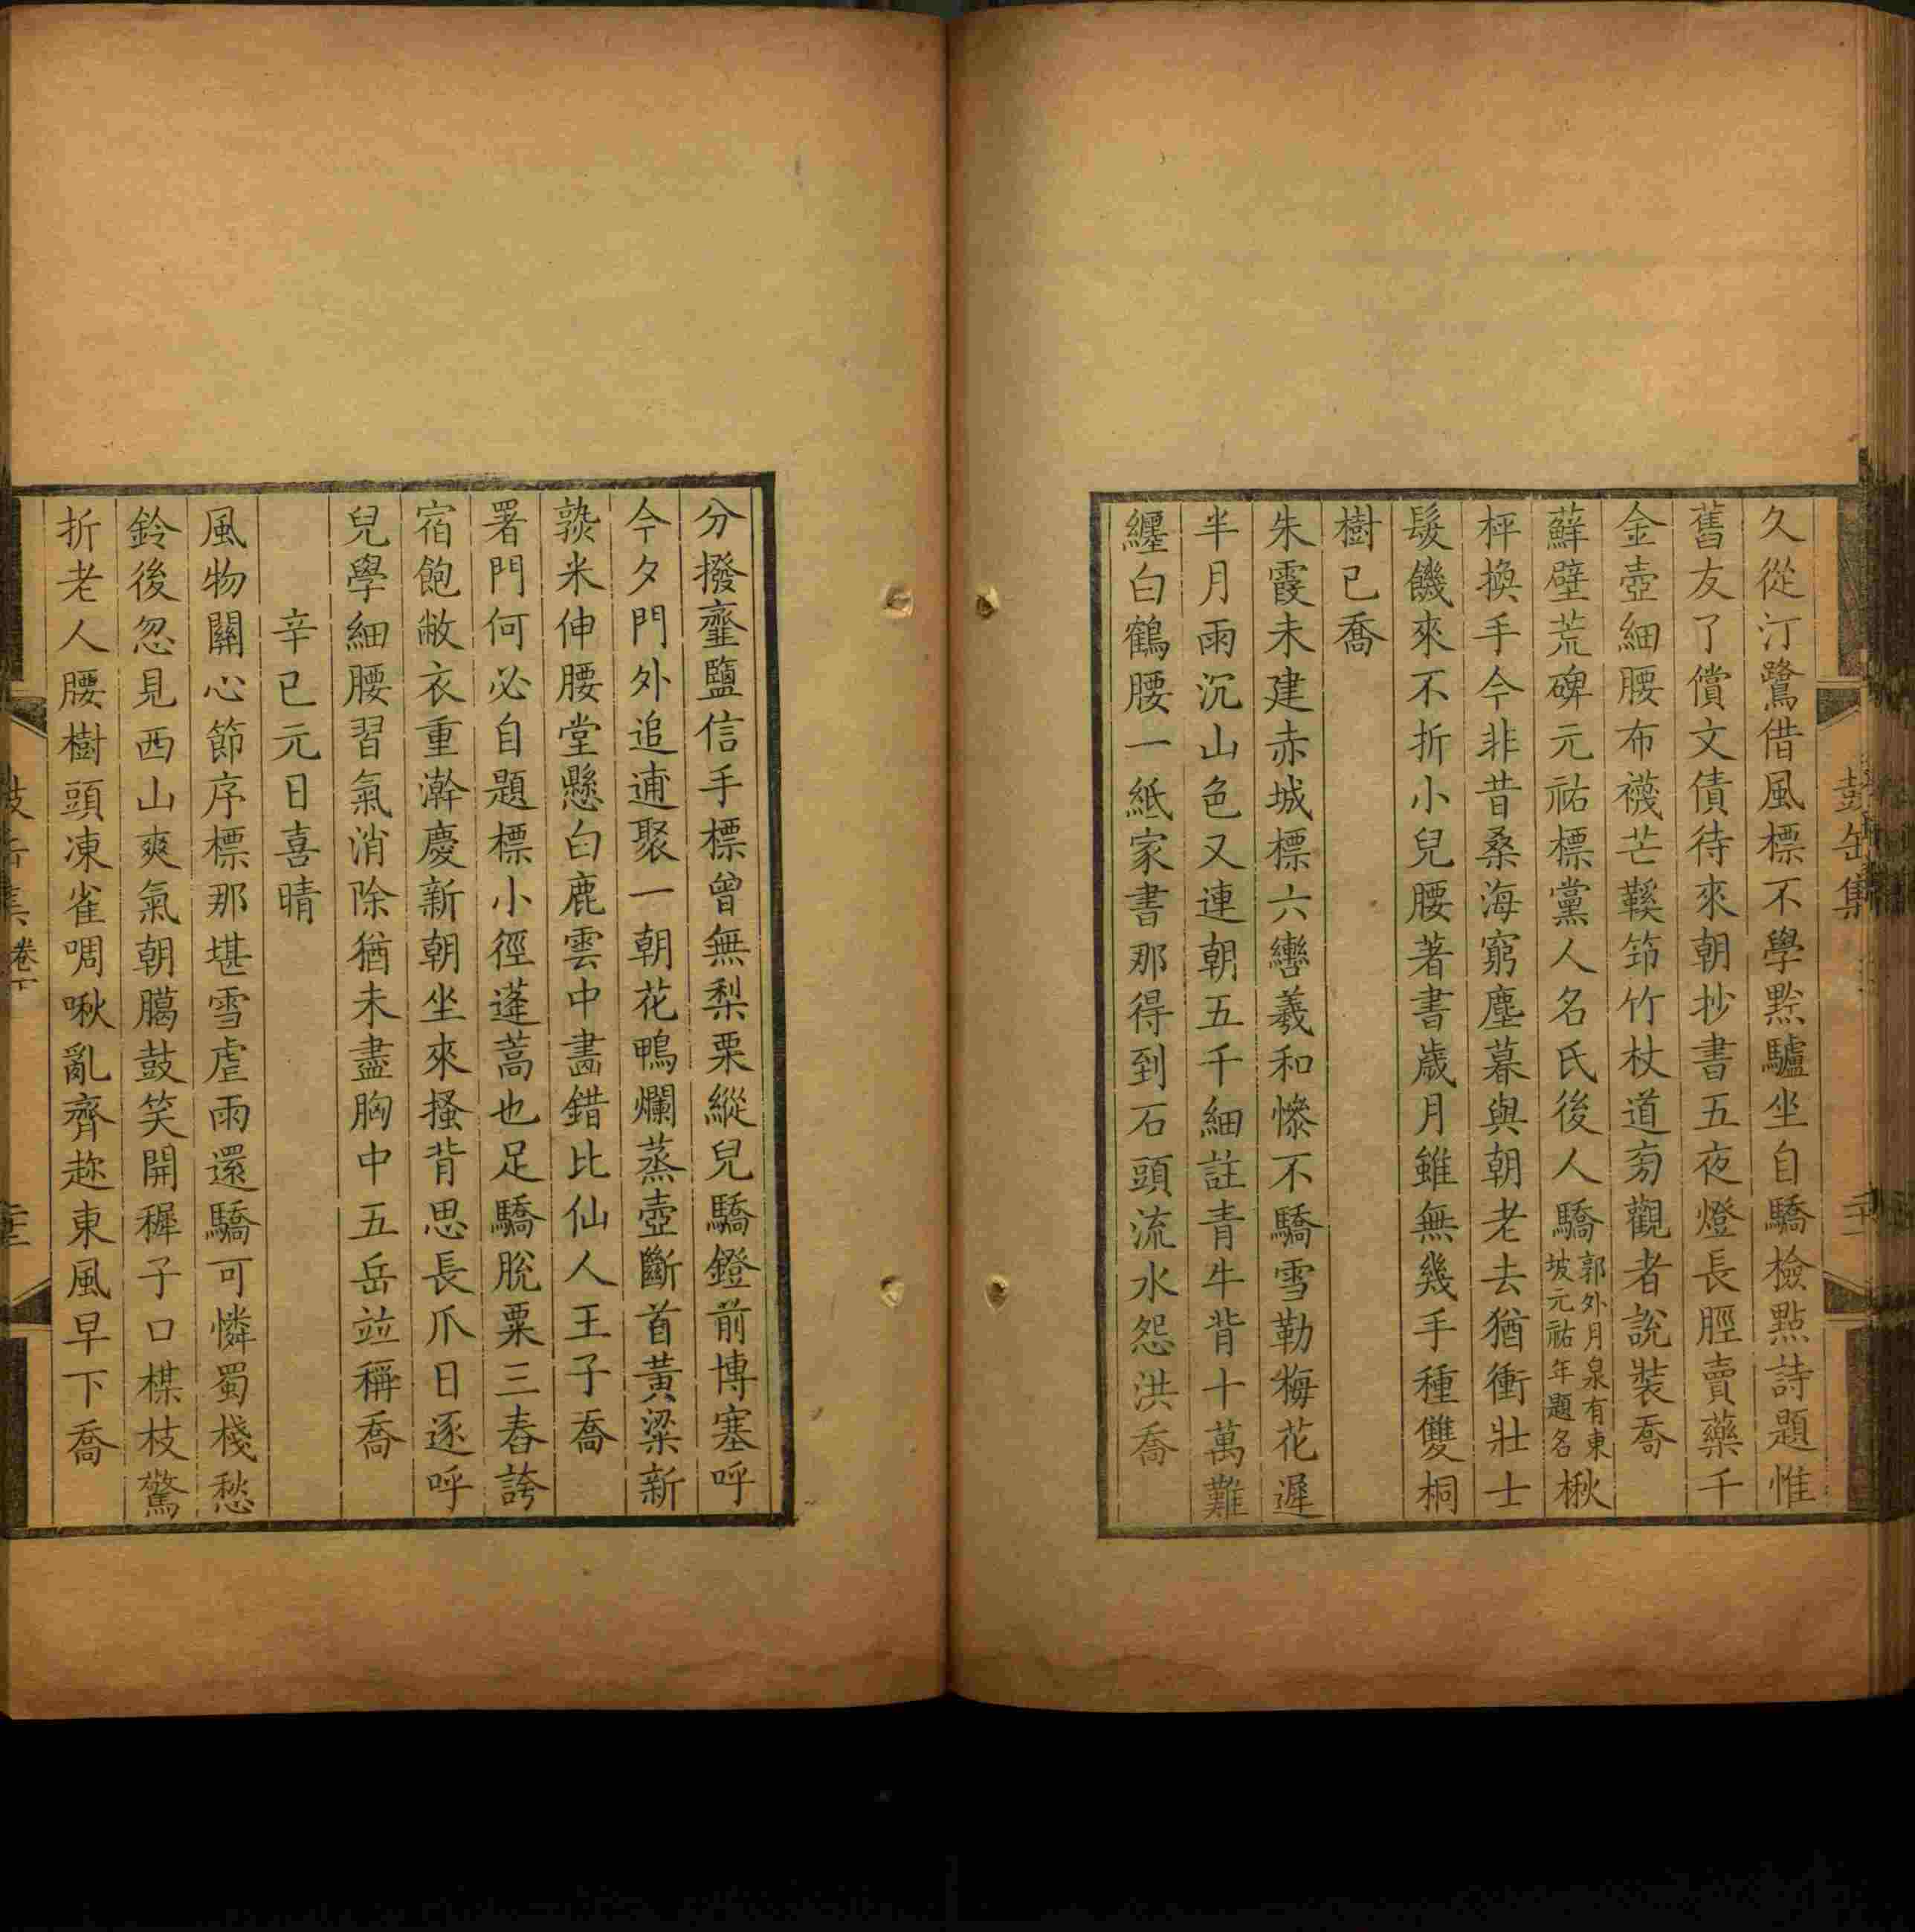 久從汀鷺借風標不學㸃驢坐自驕檢㸃詩題惟
舊友了償文債待來朝抄書五夜燈長脛賣藥千
金壺細腰布襪芒鞵笻竹杖道旁觀者說裝喬
蘚壁荒碑元祐標黨人名氏後人驕郭外月泉有東坡元祐年題名楸
枰換手今非昔桑海窮塵暮與朝老去猶衝壯士
髮饑來不折小兒腰著書歲月雖無幾手種雙桐
樹已喬
朱霞未建赤城標六轡羲和慘不驕雪勒梅花遲
半月雨沉山色又連朝五千細註青牛背十萬難
纏白鶴腰一紙家書那得到石頭流水怨洪喬
鼓缶集
分撥虀鹽信手標曾無梨栗縱兒驕鐙前博塞呼
今夕門外追逋聚一朝花鴨爛蒸壺斷首黃粱新
孰米伸腰堂懸白鹿雲中畵錯比仙人王子喬
署門何必自題標小徑蓬蒿也足驕脫粟三舂誇
宿飽敝衣重澣慶新朝坐來搔背思長爪日逐呼
兒學細腰習氣消除猶未盡胸中五岳竝稱喬
辛巳元日喜晴
風物關心節序標那堪雪虐雨還驕可憐蜀棧愁
鈴後忽見西山爽氣朝臈鼓笑開穉子口楳枝驚
折老人腰樹頭凍雀啁啾亂齊趂東風早下喬